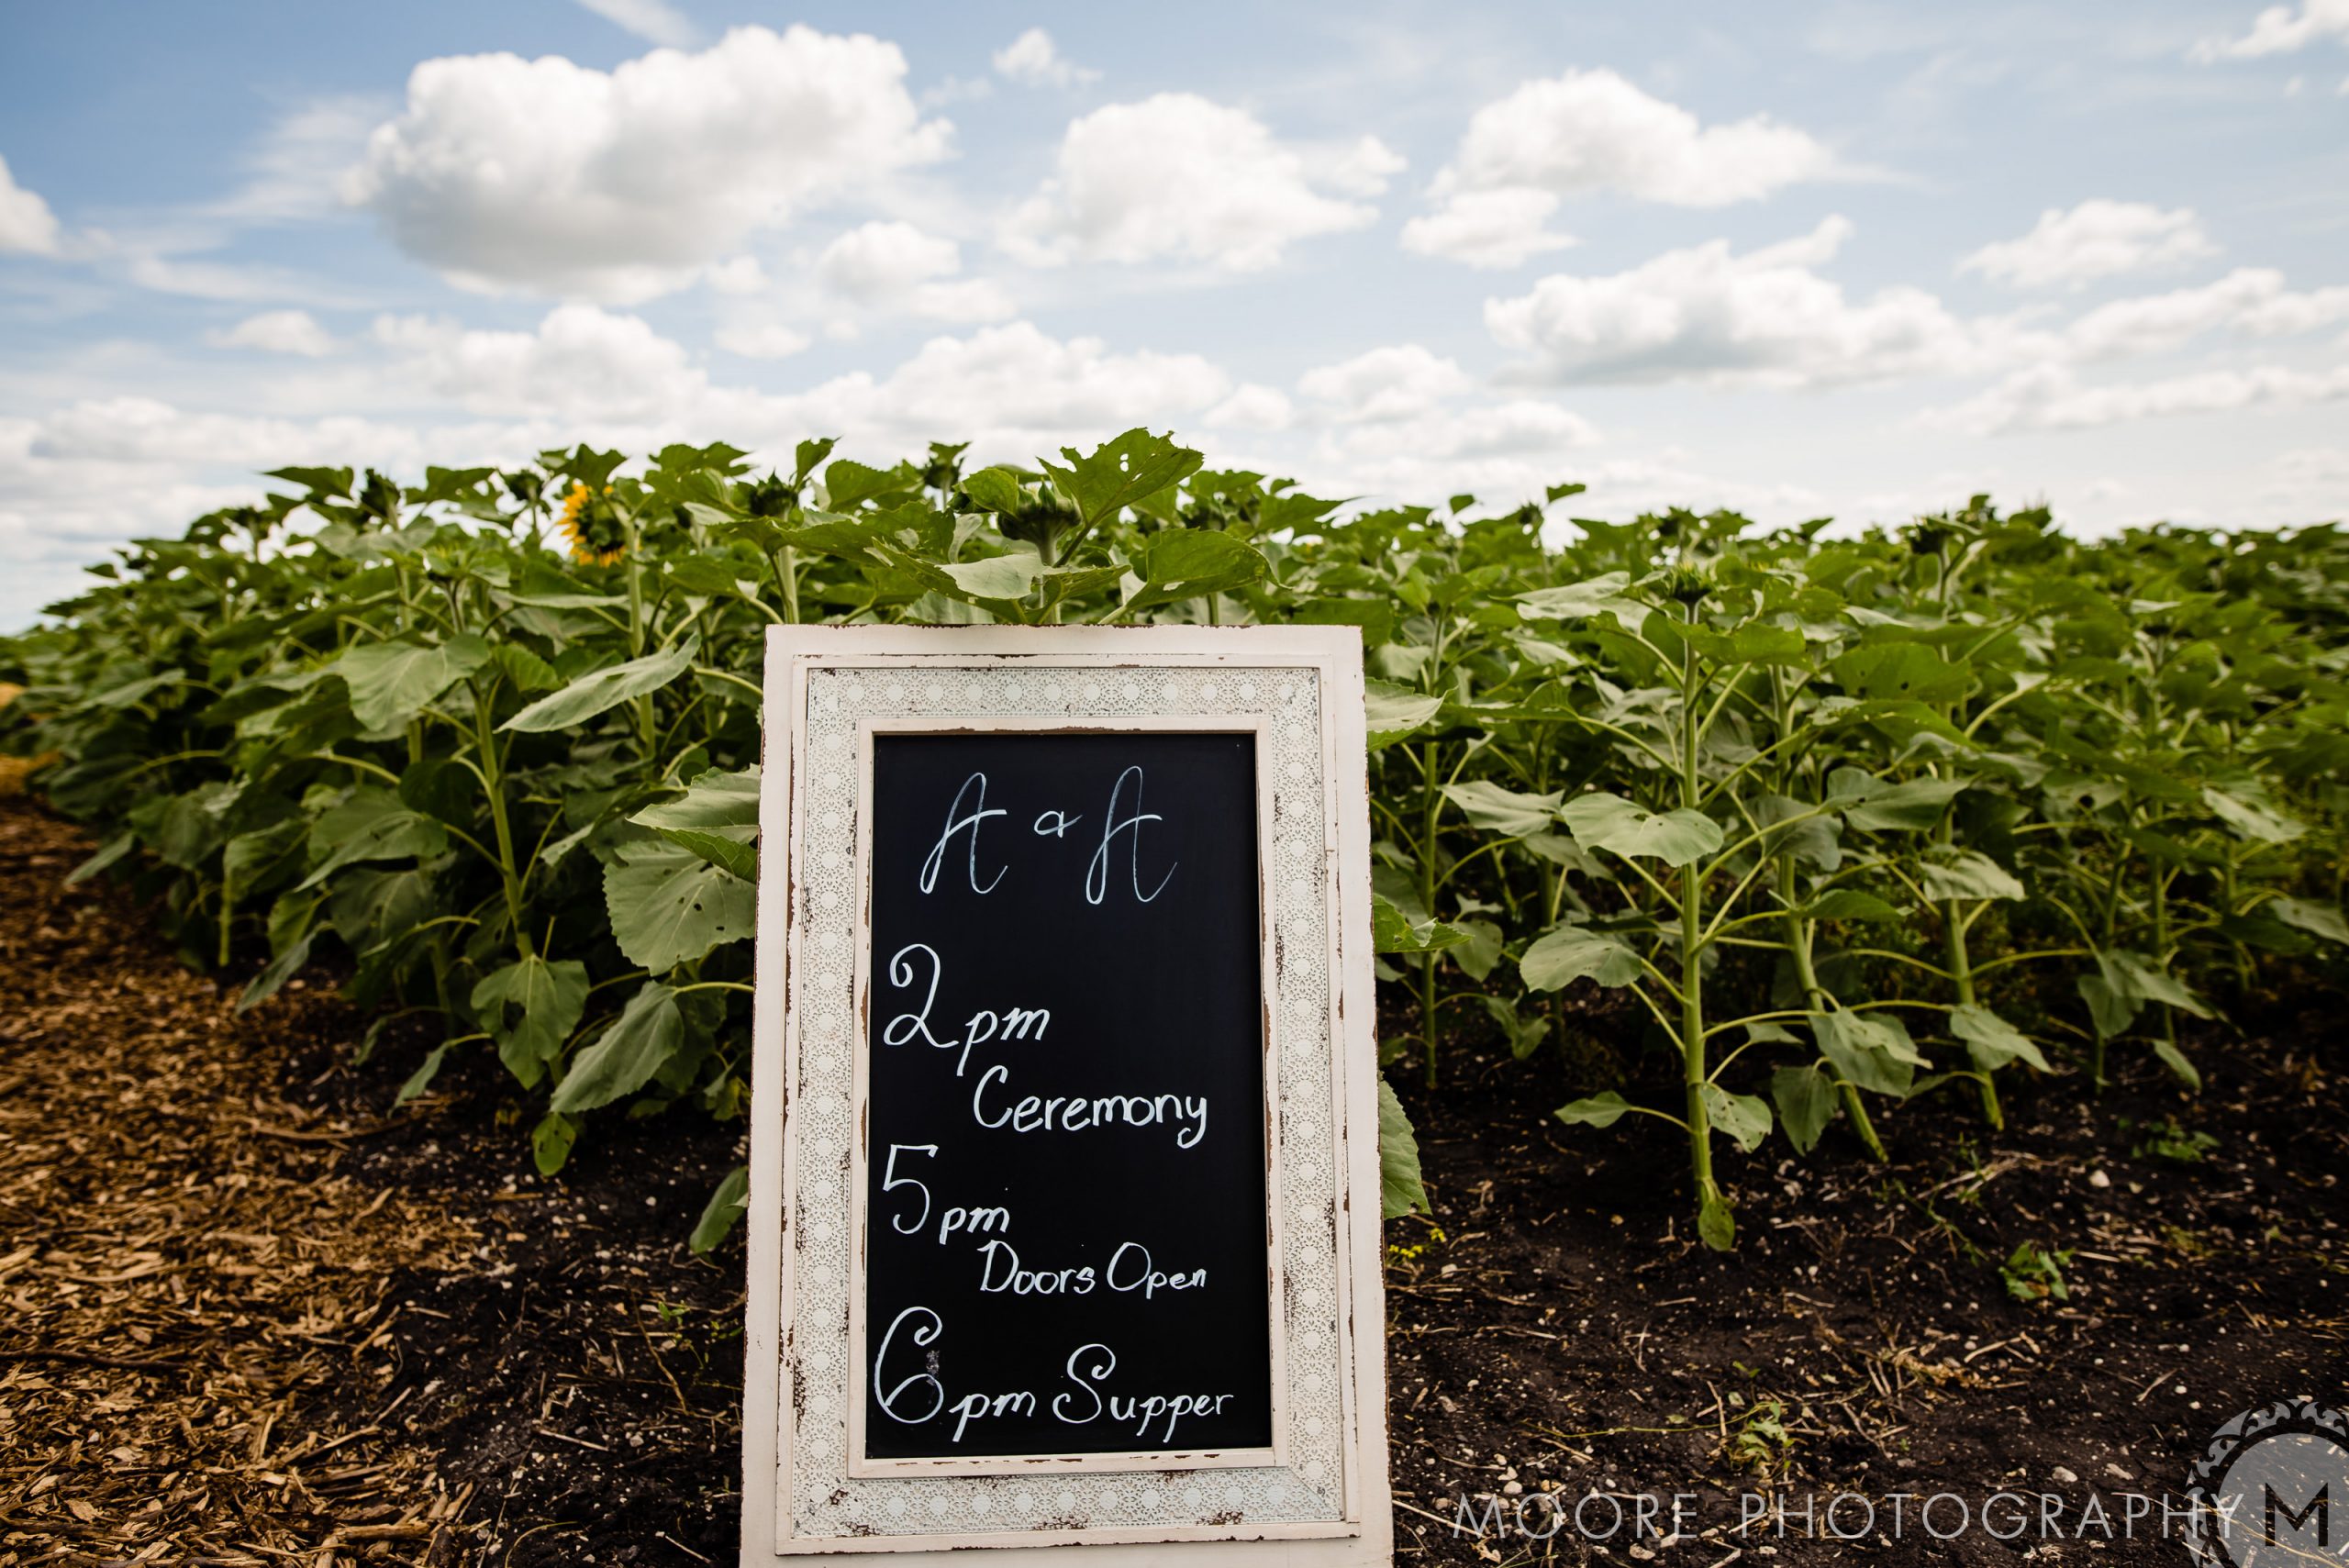 A & A
2pm
Ceremony
5pm
Doors Open
6pm Supper
MOORE PHOTOGRAPHY
M